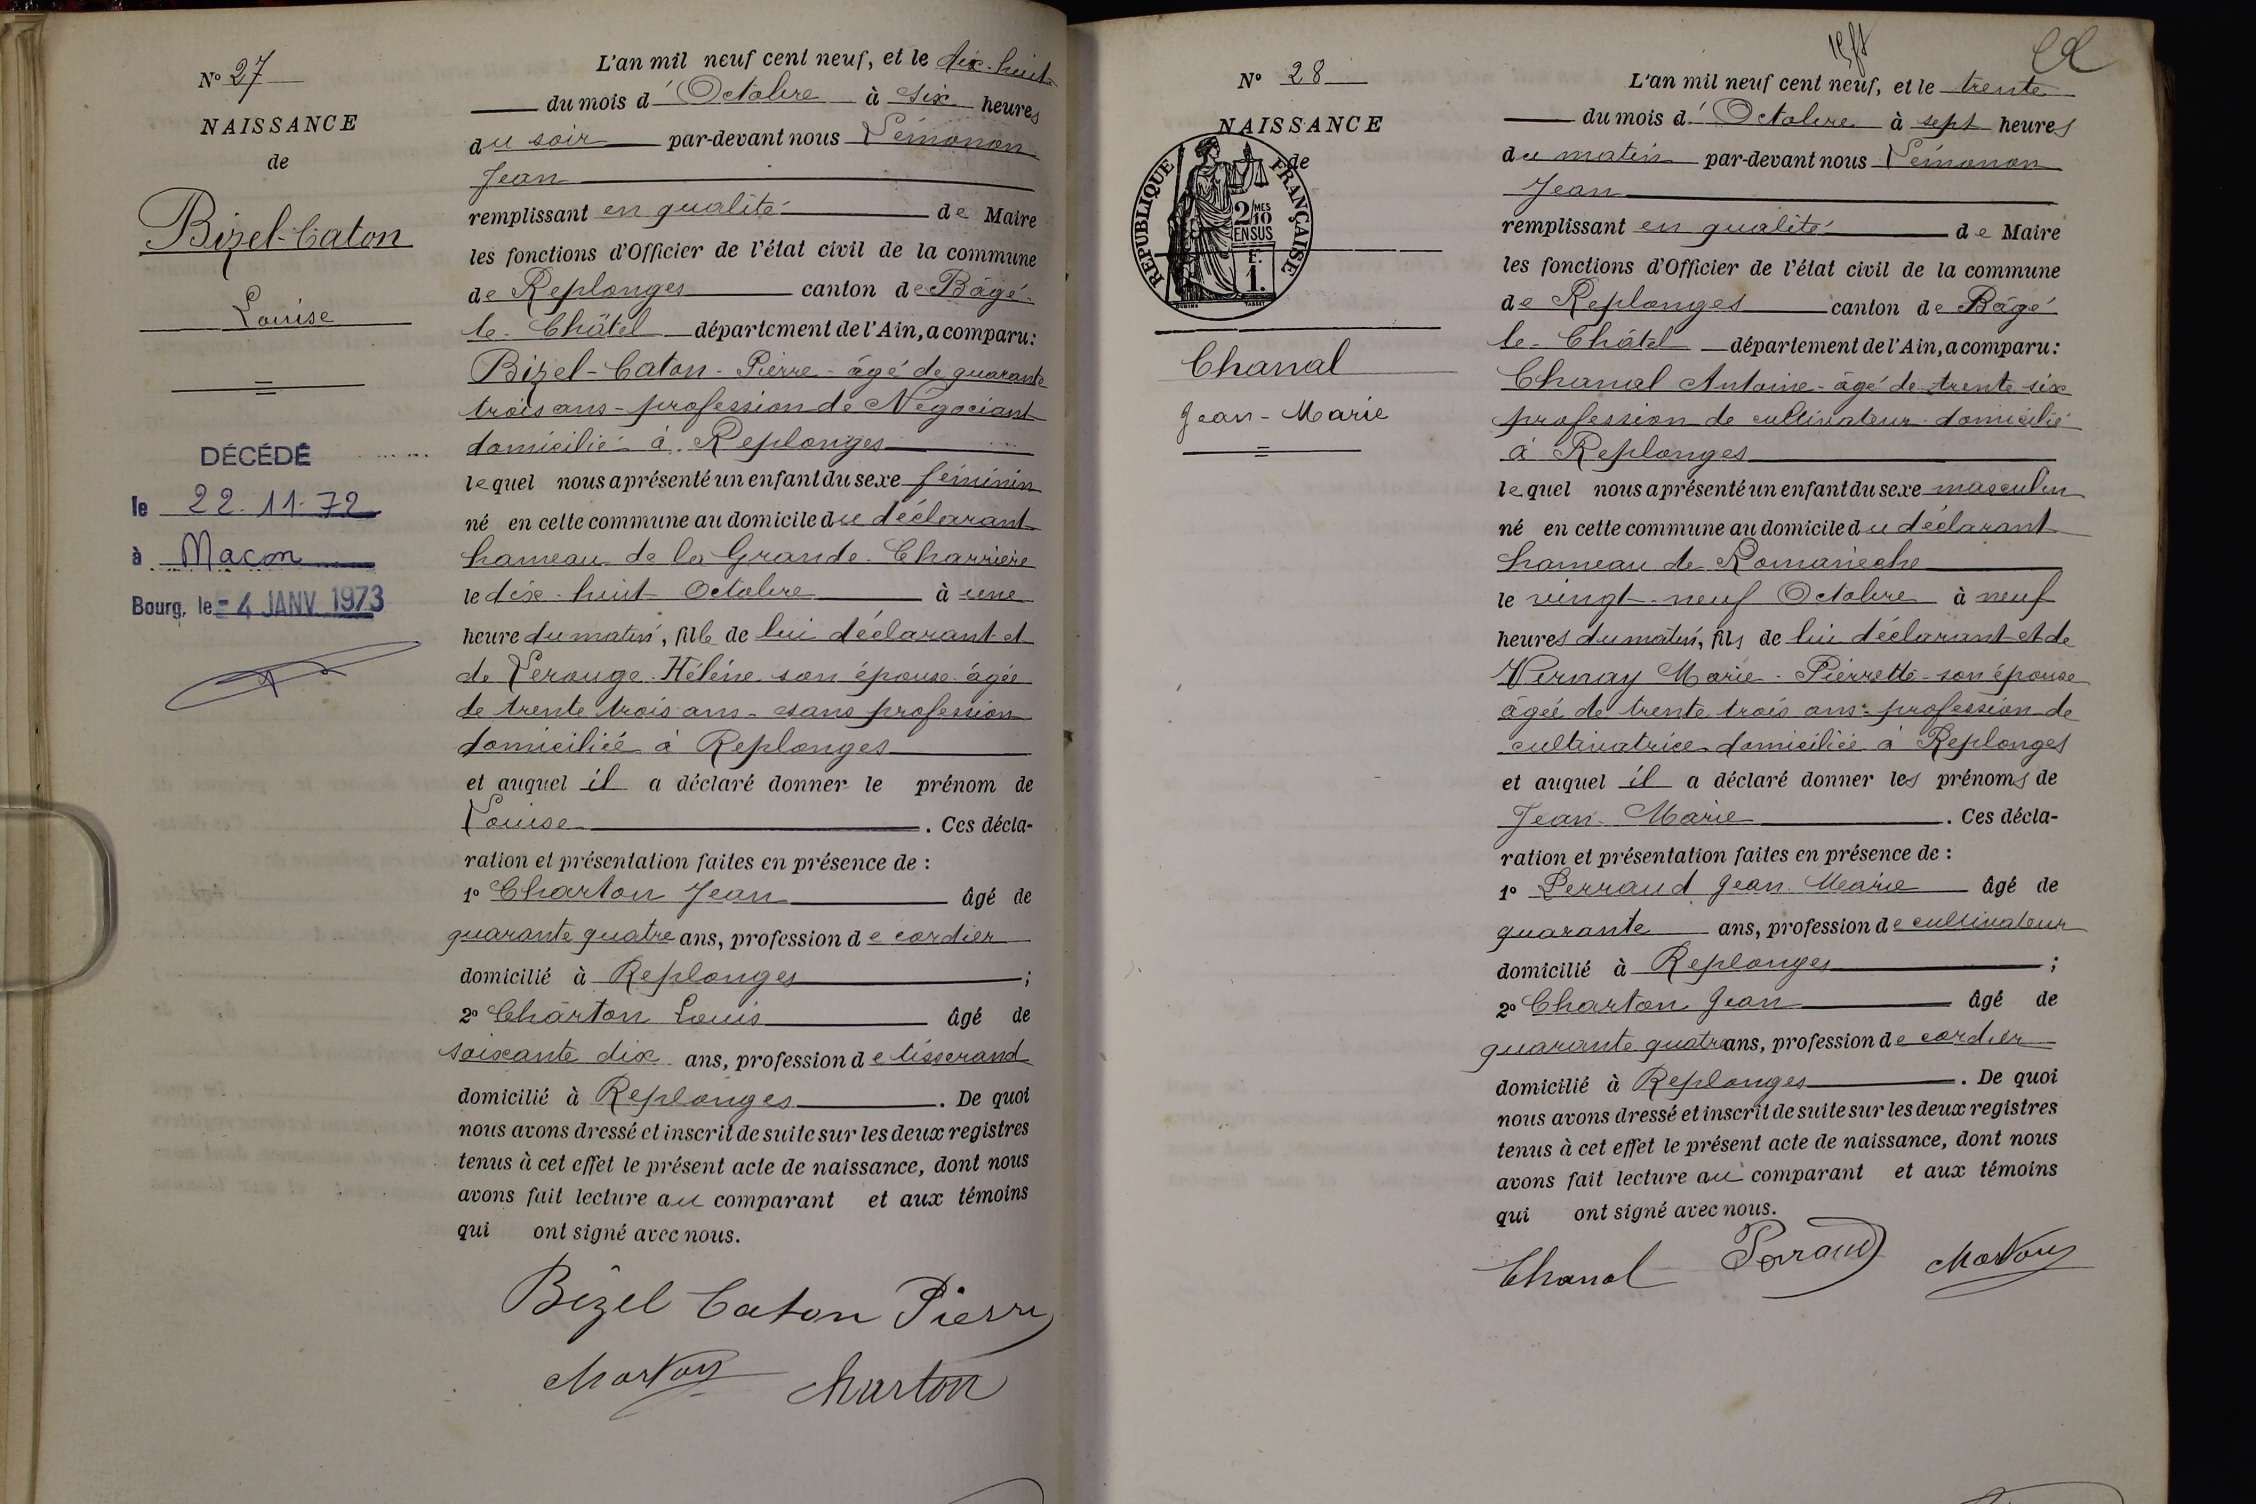 N° 27
NAISSANCE
de
Bizel-Caton
Louise
DÉCÉDÉ
le 22.11.72
à Macon
Bourg, le - 4 JANV 1973
L'an mil neuf cent neuf, et le dix-huit
du mois d'Octobre à six heures
du soir par-devant nous Lémonon
Jean
remplissant en qualité de Maire
les fonctions d'Officier de l'état civil de la commune
de Replonges canton de Bâgé-
le-Châtel département de l'Ain, a comparu:
Bizel-Caton-Pierre-âgé de quarante
trois ans-profession de Négociant
domicilié à Replonges
lequel nous a présenté un enfant du sexe féminin
né en cette commune au domicile du déclarant
hameau de la Grande Charrière
le dix-huit Octobre à une
heure du matin, fille de lui déclarant et
de Lerouge Hélène son épouse âgée
de trente trois ans-sans profession
domiciliée à Replonges
et auquel il a déclaré donner le prénom de
Louise. Ces décla-
ration et présentation faites en présence de :
1° Charton Jean âgé de
quarante quatre ans, profession de cordier
domicilié à Replonges ;
2° Charton Louis âgé de
soixante dix ans, profession de tisserand
domicilié à Replonges. De quoi
nous avons dressé et inscrit de suite sur les deux registres
tenus à cet effet le présent acte de naissance, dont nous
avons fait lecture au comparant et aux témoins
qui ont signé avec nous.
Bizel Caton Pierre
Charton
N° 28
NAISSANCE
de
RÉPUBLIQUE FRANÇAISE
2/10 MES
EN SUS
F.
1.
Chanal
Jean-Marie
L'an mil neuf cent neuf, et le trente
du mois d'Octobre à sept heures
du matin par-devant nous Lémonon
Jean
remplissant en qualité de Maire
les fonctions d'Officier de l'état civil de la commune
de Replonges canton de Bâgé
le-Châtel département de l'Ain, a comparu:
Chanal Antoine-âgé de trente six
profession de cultivateur domicilié
à Replonges
lequel nous a présenté un enfant du sexe masculin
né en cette commune au domicile du déclarant
hameau de Romanèche
le vingt-neuf Octobre à neuf
heures du matin, fils de lui déclarant et de
Vernay Marie-Pierrette-son épouse
âgée de trente trois ans-profession de
cultivatrice domiciliée à Replonges
et auquel il a déclaré donner les prénoms de
Jean-Marie. Ces décla-
ration et présentation faites en présence de :
1° Perraud Jean Marie âgé de
quarante ans, profession de cultivateur
domicilié à Replonges ;
2° Charton Jean âgé de
quarante quatre ans, profession de cordier
domicilié à Replonges. De quoi
nous avons dressé et inscrit de suite sur les deux registres
tenus à cet effet le présent acte de naissance, dont nous
avons fait lecture au comparant et aux témoins
qui ont signé avec nous.
Chanal Perraud